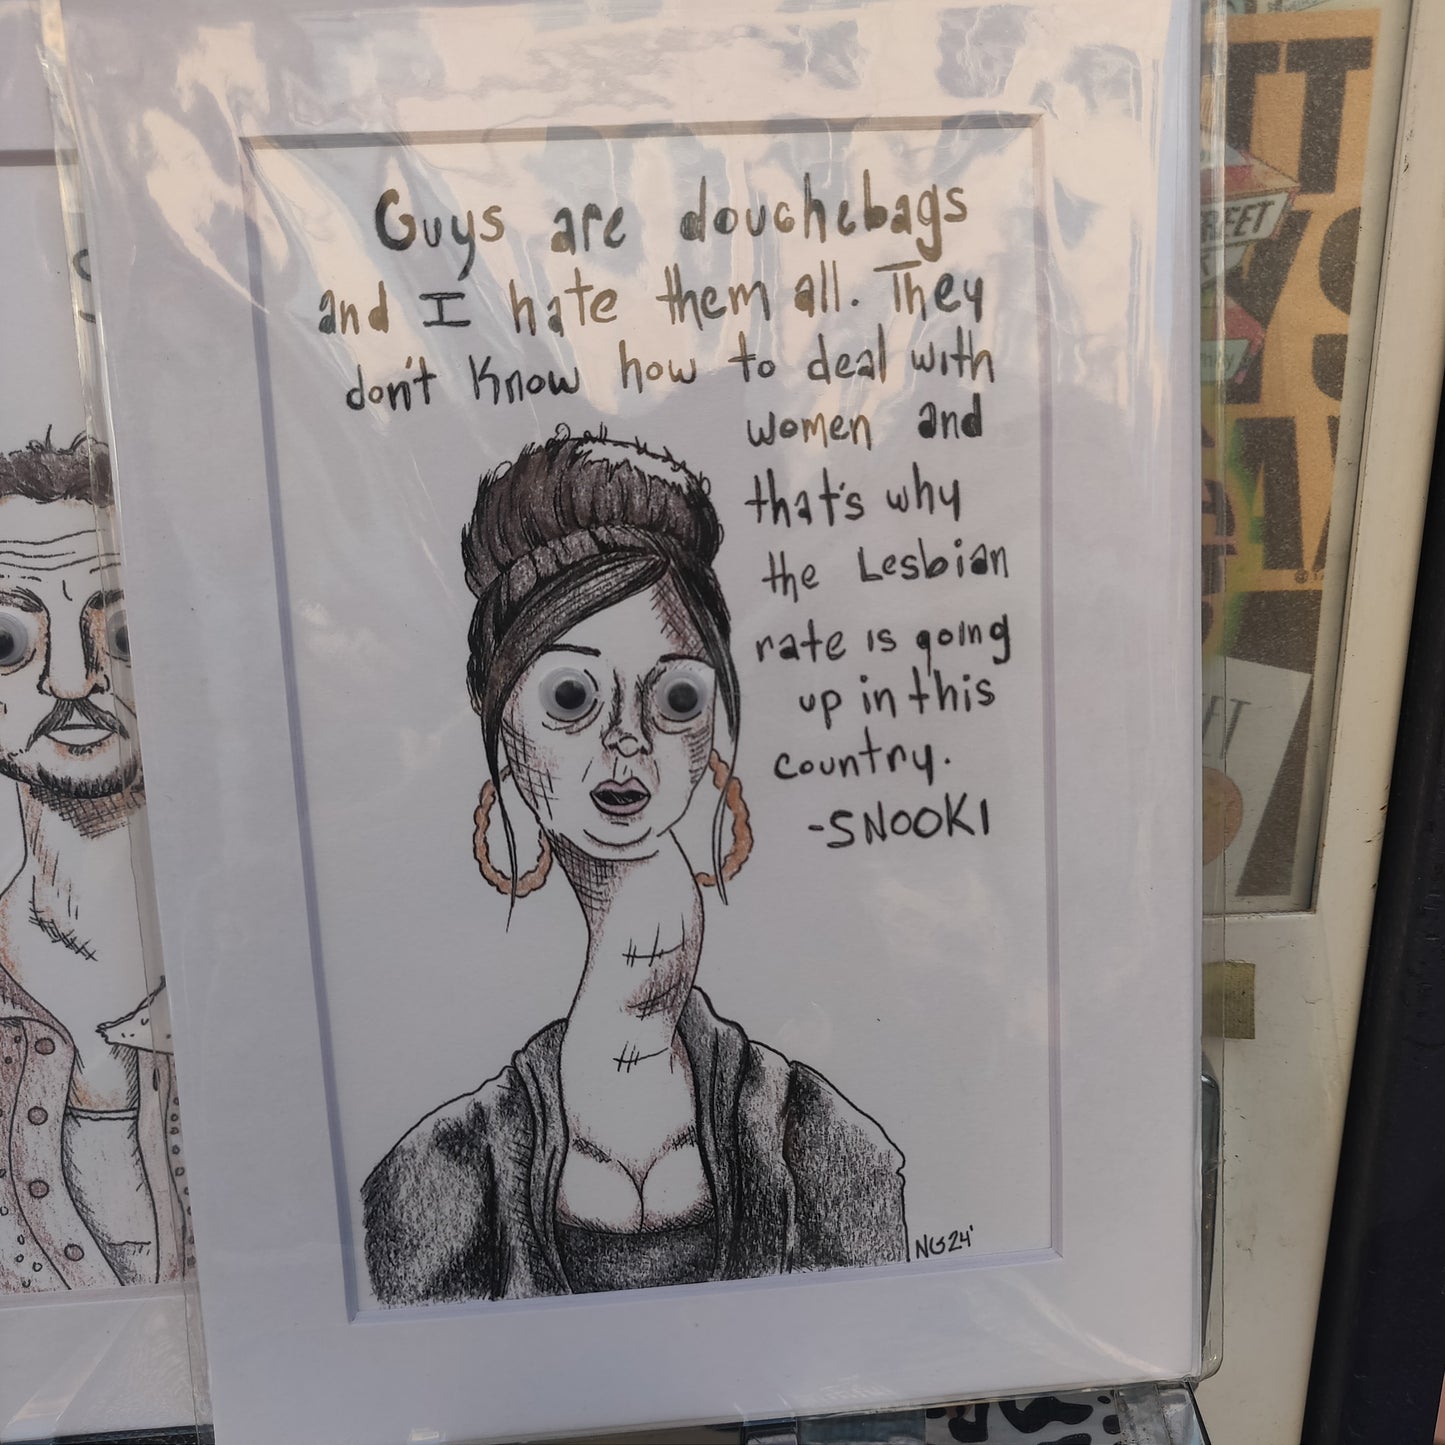 Guys are douchebags
and I hate them all. They
don't know how to deal with
women and
that's why
the Lesbian
rate is going
up in this
country.
-SNOOKI
NG24'
REET